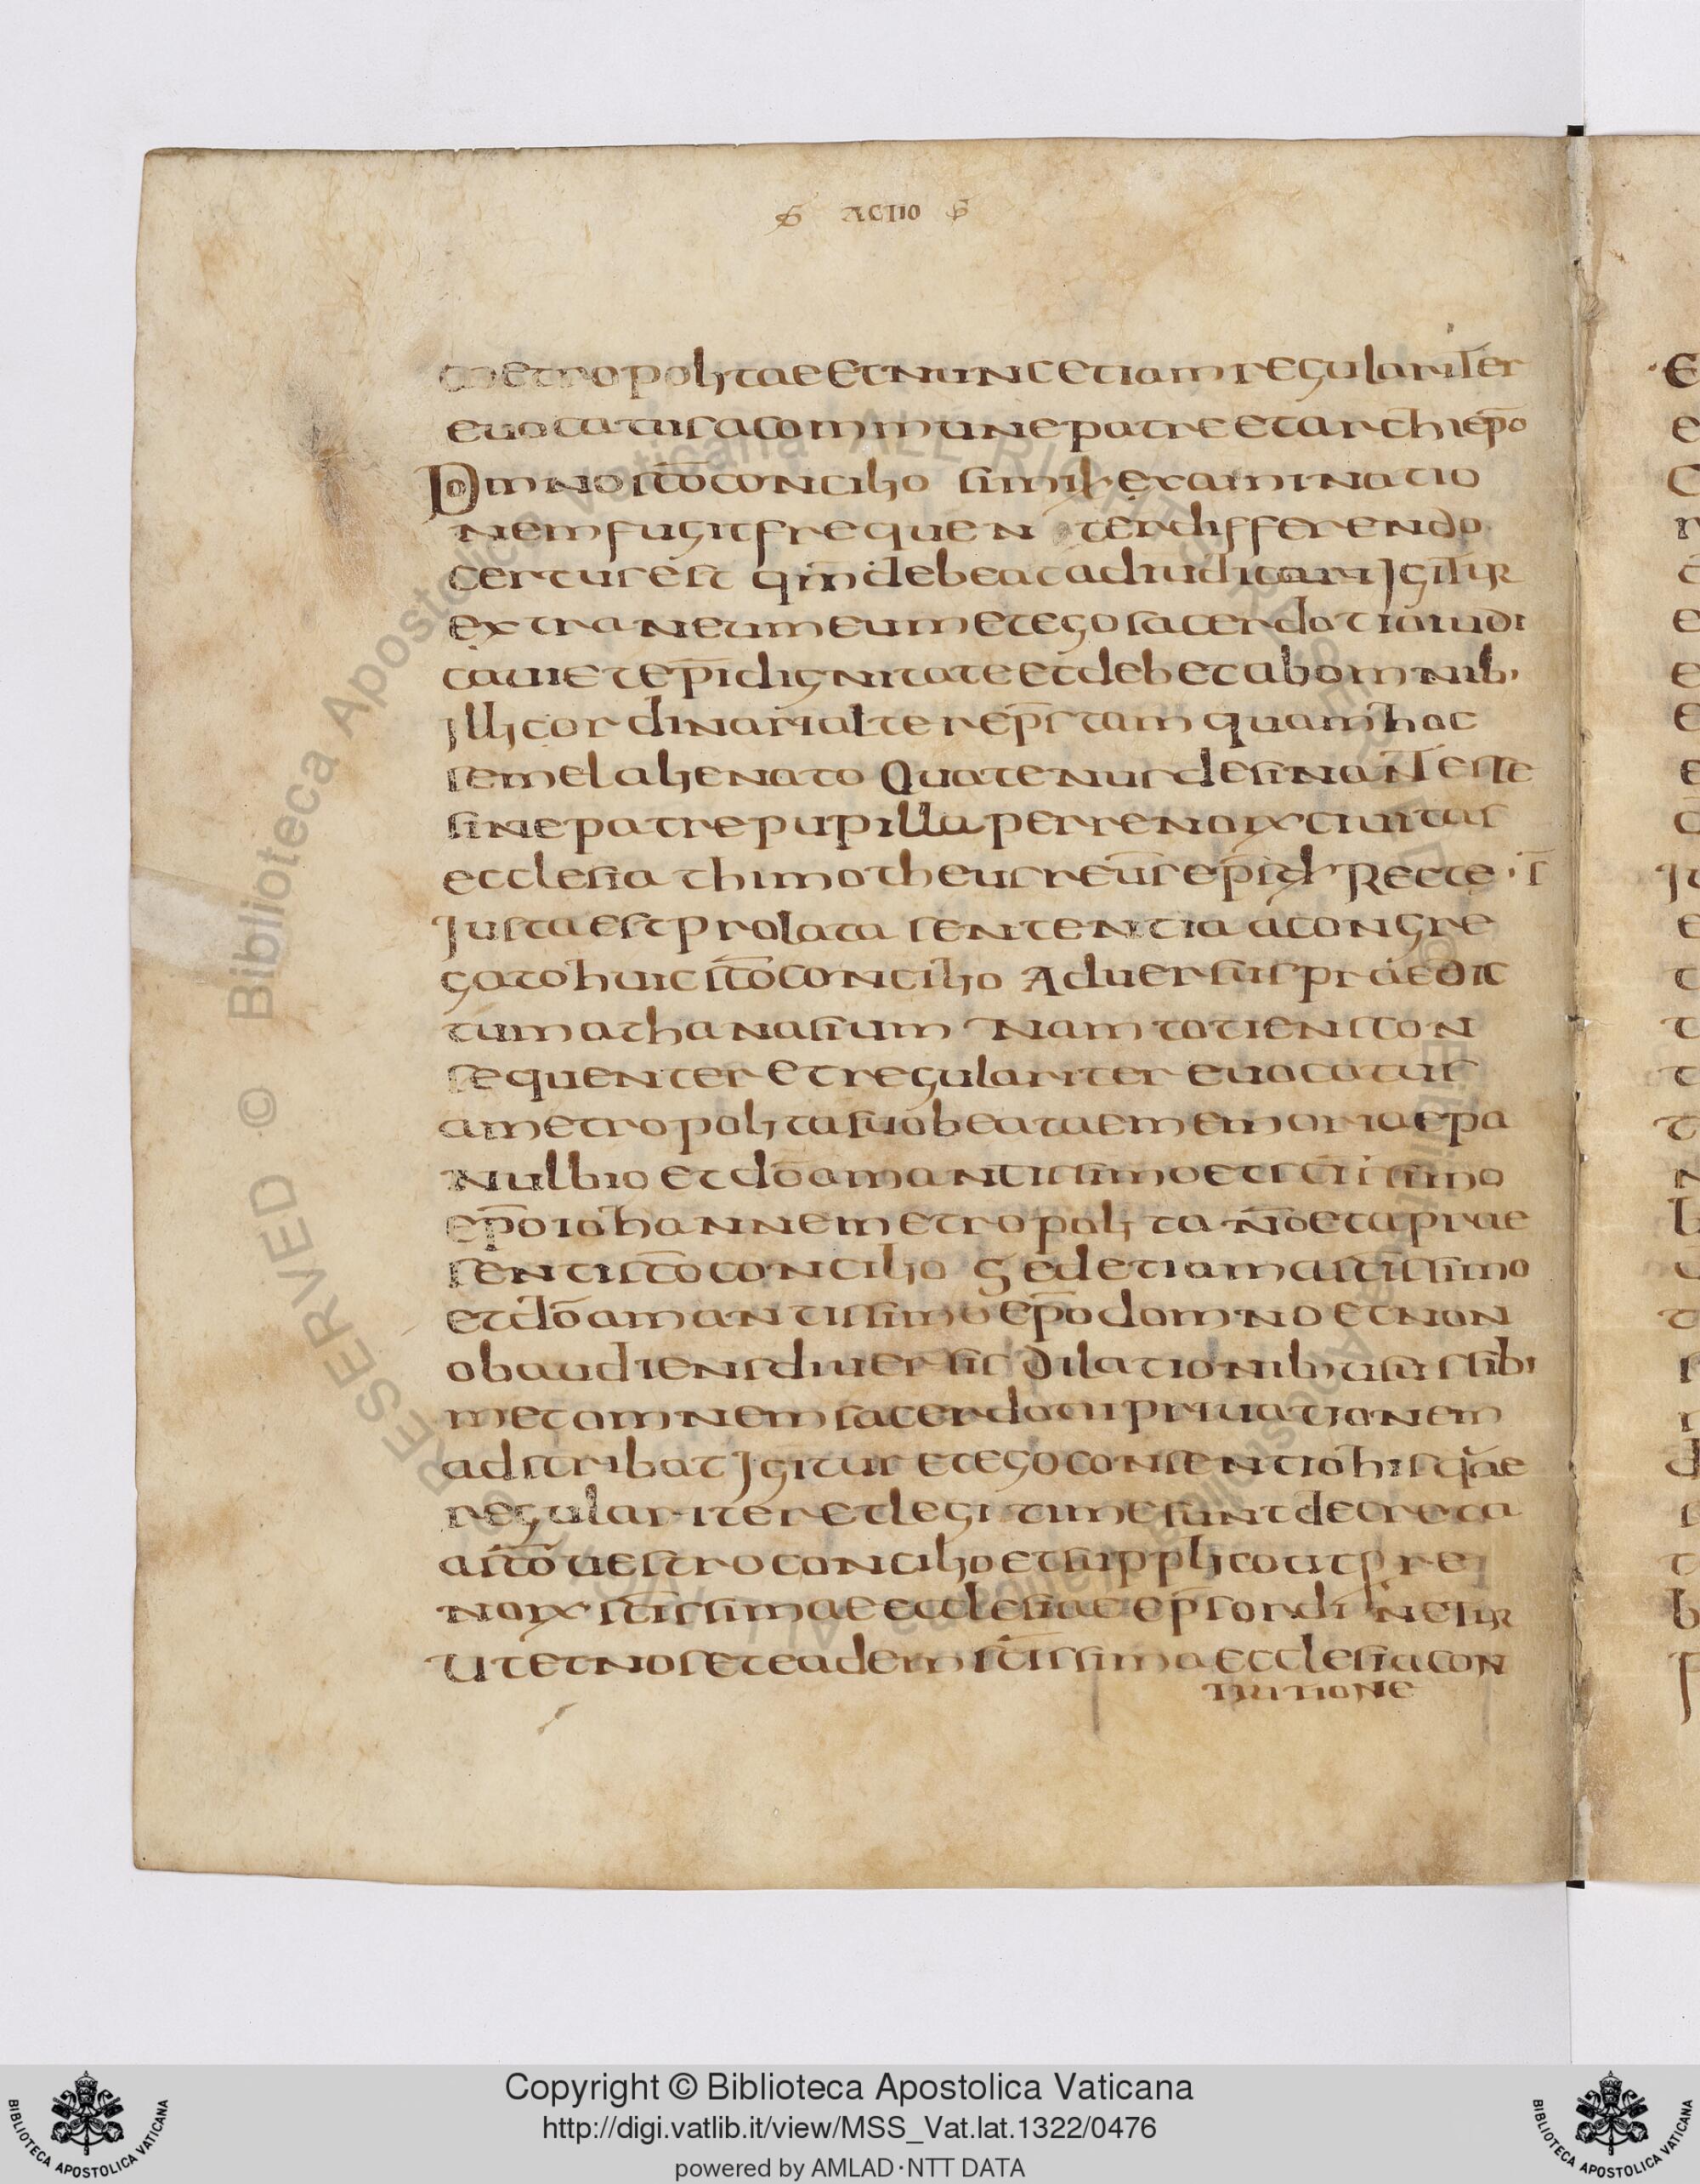 ACTIO
metropolitae et nunc etiam regulariter
euocatus a commune patre et archiepō
Domno sc̄o concilio simili examinatio
nem fugit frequenter differendo
certus est qm̄ debeat adiudicari Igitur
extraneum eum et ego sacerdotio iudi
caui et ep̄i dignitate et debet ab omnib·
illic ordinari alter ep̄s tamquam hoc
semel alienato Quatenus desinant esse
sine patre pupilla perrenoix ciuitas
ecclesia thimotheus reu̅s ep̄s
Iusta est prolata sententia a congre
gato huic sc̄o concilio Aduersus praedic
tum athanasium Nam totiens con
sequenter et regulariter euocatus
a metropolita suo beatae memoriae pa
nulbio et dō amantissimo et sc̄issimo
ep̄o iohanne metropolita nō et a prae
senti sc̄o concilio Sed etiam a sc̄issimo
et dō amantissimo ep̄o domno et non
obaudiens diuersis dilationib· usus sibi
met omnem sacerdotii priuationem
adscribat Igitur et ego consentio his quae
regulariter et legitime sunt decreta
a sc̄o uestro concilio et supplico ut per
noix sc̄issimae ecclesiae ep̄s ordinetur
Ut et nos et eadem sc̄issima ecclesia con
tritione
Copyright © Biblioteca Apostolica Vaticana
http://digi.vatlib.it/view/MSS_Vat.lat.1322/0476
powered by AMLAD·NTT DATA